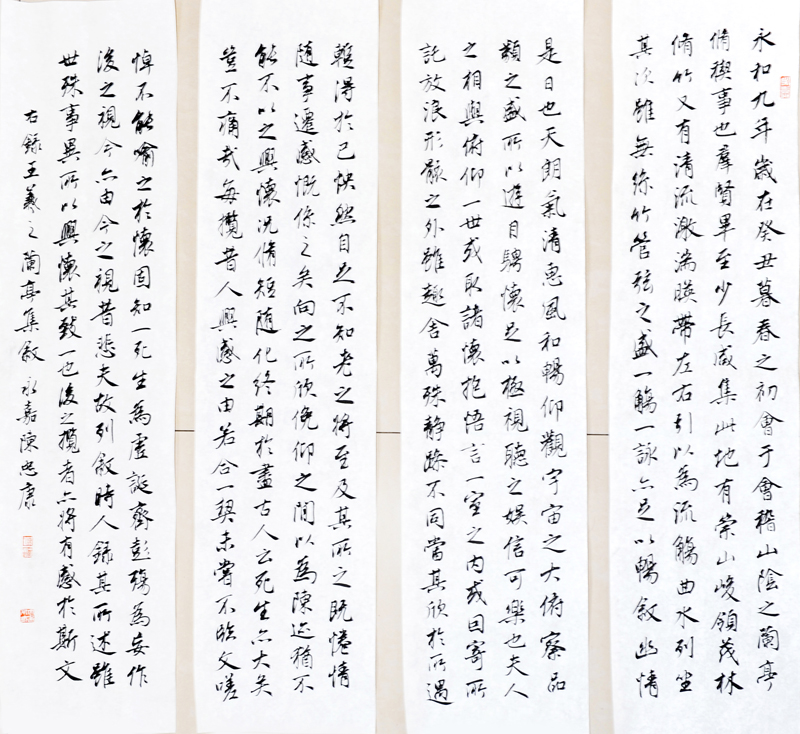 永和九年歲在癸丑暮春之初會于會稽山陰之蘭亭
脩稧事也羣賢畢至少長咸集此地有崇山峻領茂林
脩竹又有清流激湍暎帶左右引以為流觴曲水列坐
其次雖無絲竹管弦之盛一觴一詠亦足以暢敘幽情
是日也天朗氣清惠風和暢仰觀宇宙之大俯察品
類之盛所以遊目騁懷足以極視聽之娛信可樂也夫人
之相與俯仰一世或取諸懷抱悟言一室之內或因寄所
託放浪形骸之外雖趣舍萬殊靜躁不同當其欣於所遇
暫得於己怏然自足不知老之將至及其所之既惓情
随事遷感慨係之矣向之所欣俛仰之間以為陳迹猶不
能不以之興懷況脩短随化終期於盡古人云死生亦大矣
豈不痛哉每攬昔人興感之由若合一契未嘗不臨文嗟
悼不能喻之於懷固知一死生為虛誕齊彭殤為妄作
後之視今亦由今之視昔悲夫故列敘時人錄其所述雖
世殊事異所以興懷其致一也後之攬者亦將有感於斯文
右錄王羲之蘭亭集敘 永嘉陳忠康